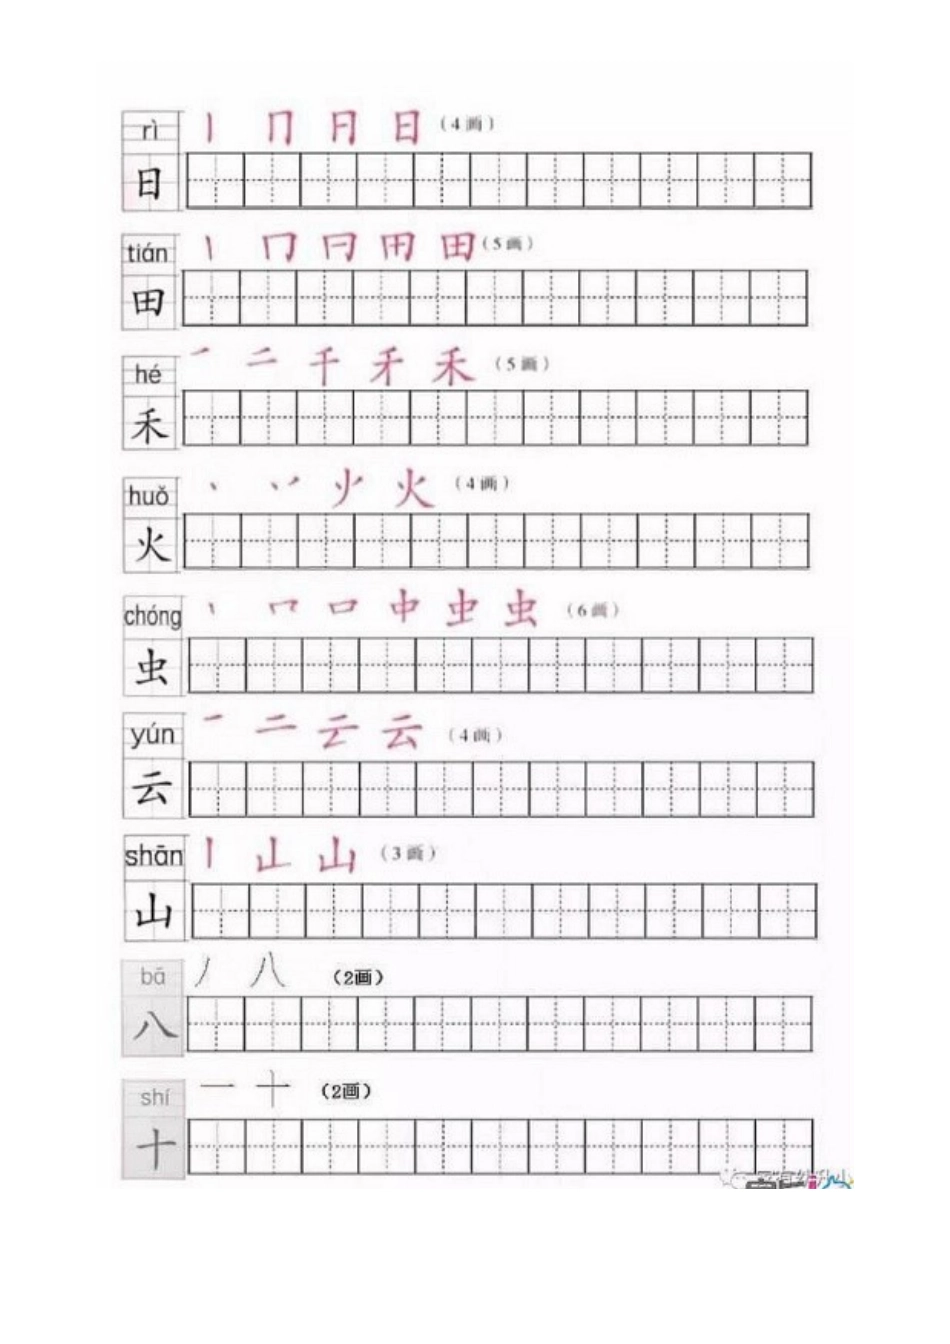 rì 丨 冂 月 日 (4画)
日
tián 丨 冂 曰 用 田 (5画)
田
hé 一 二 千 禾 禾 (5画)
禾
huǒ 丶 丷 火 (4画)
火
chóng 丨 口 中 虫 (6画)
虫
yún 一 二 云 云 (4画)
云
shān 丨 止 山 (3画)
山
bā 丿 八 (2画)
八
shí 一 十 (2画)
十